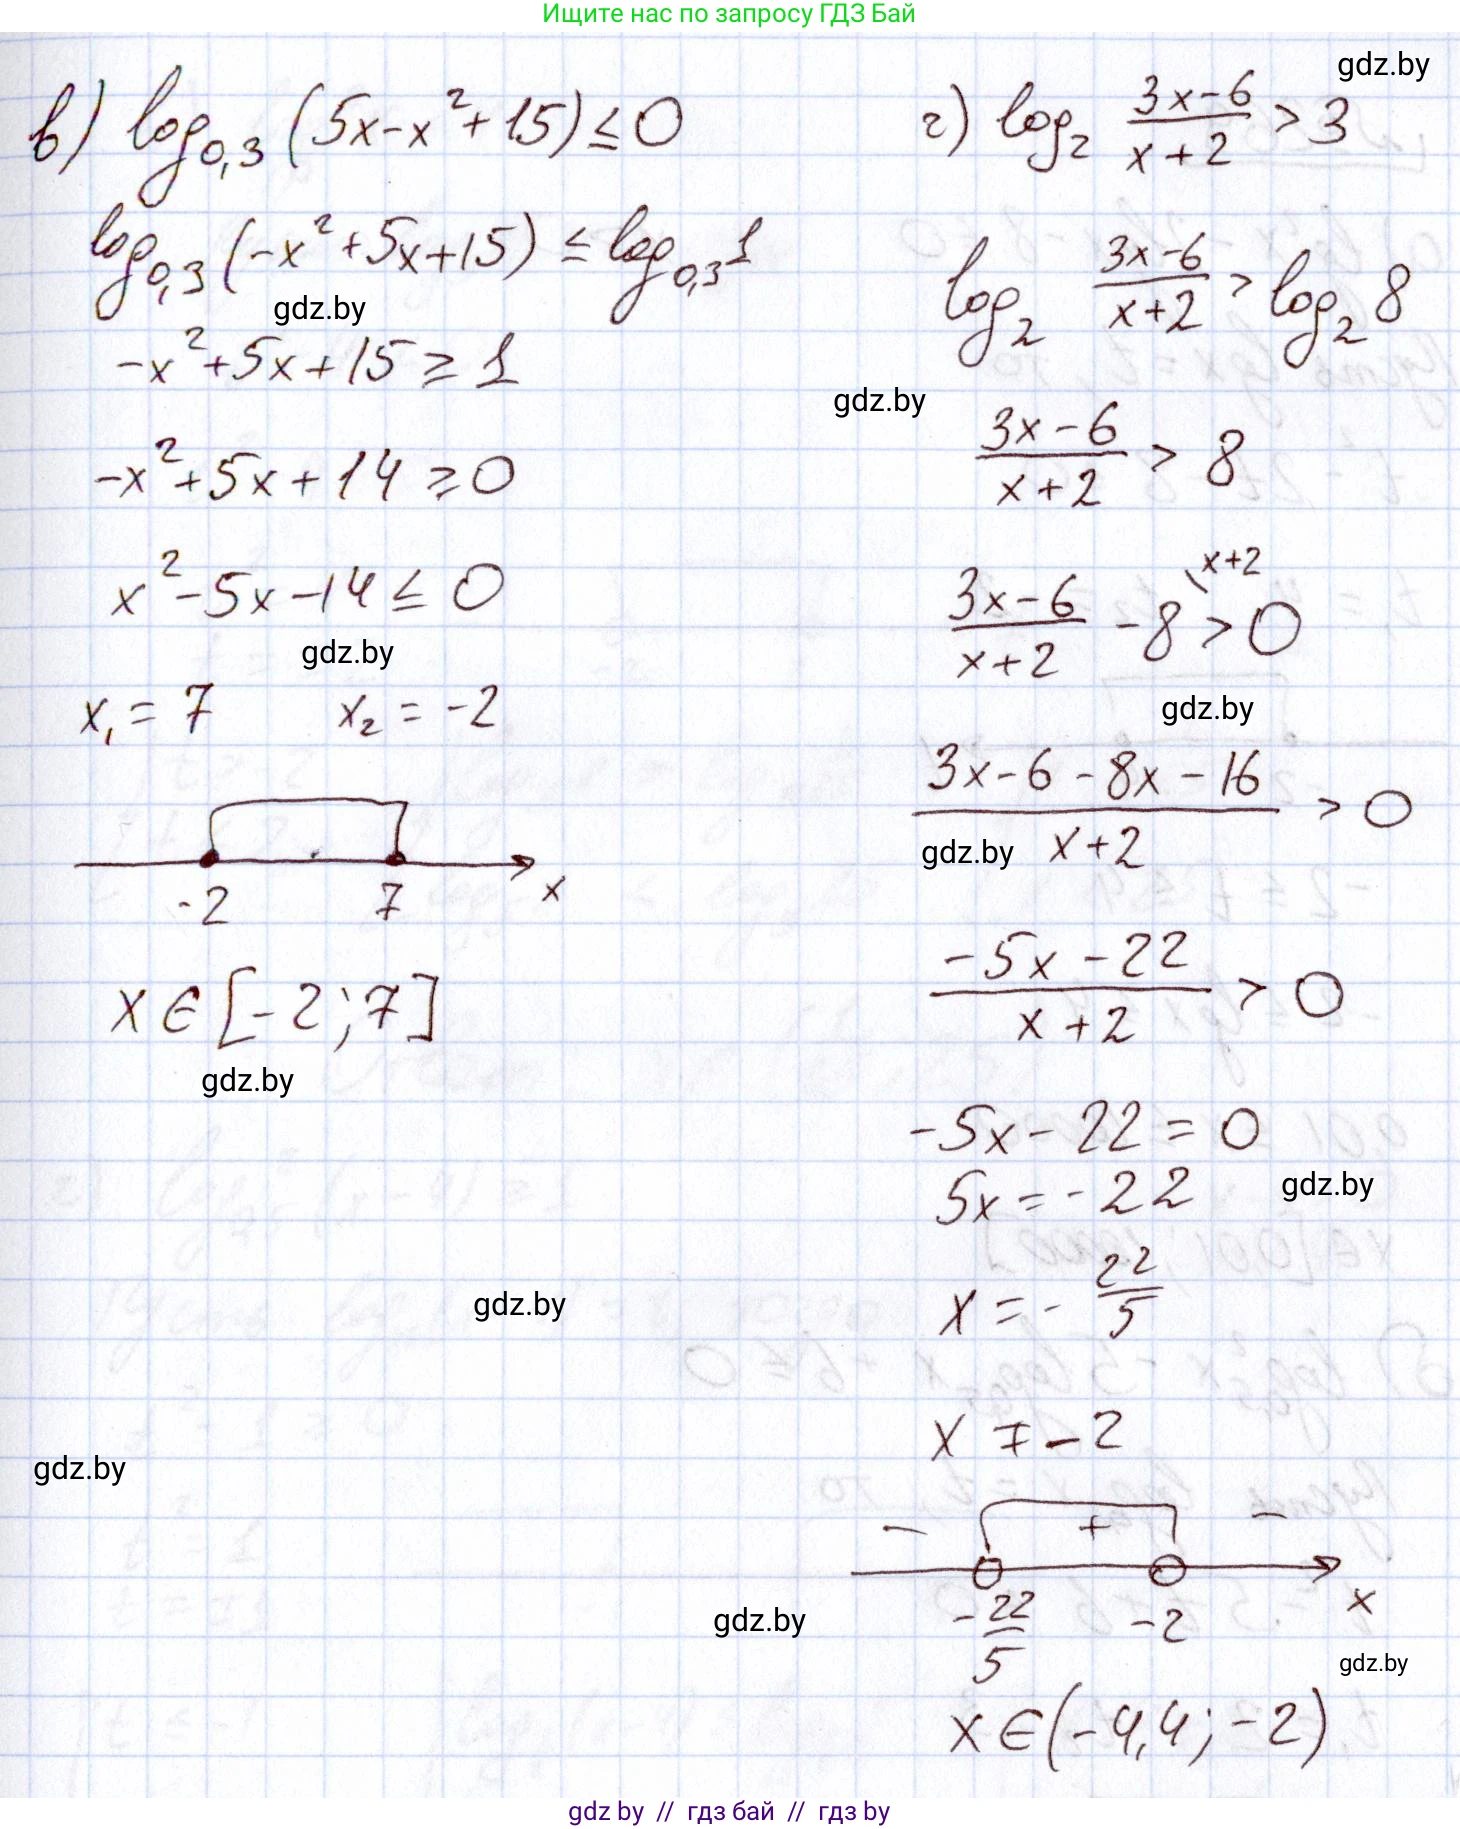 Ищите нас по запросу ГДЗ Бай
gdz.by
в) log₀,₃ (5x-x²+15) ≤ 0
log₀,₃ (-x²+5x+15) ≤ log₀,₃ 1
gdz.by
-x²+5x+15 ≥ 1
-x²+5x+14 ≥ 0
x²-5x-14 ≤ 0
gdz.by
x₁ = 7 x₂ = -2
-2 7 x
x ∈ [-2; 7]
gdz.by
gdz.by
gdz.by
г) log₂ (3x-6)/(x+2) > 3
log₂ (3x-6)/(x+2) > log₂ 8
gdz.by
(3x-6)/(x+2) > 8
(3x-6)/(x+2) - 8 \x+2 > 0
gdz.by
(3x-6-8x-16)/(x+2) > 0
gdz.by
(-5x-22)/(x+2) > 0
-5x-22 = 0
gdz.by
5x = -22
x = -22/5
x ≠ -2
- + -
-22/5 -2 x
gdz.by
gdz.by
x ∈ (-4,4; -2)
gdz by // гдз бай // гдз by